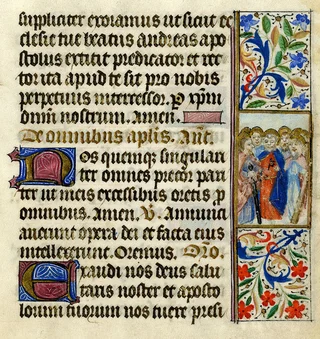 suppliciter exoramus ut sicut ec
clesie tue beatus andreas apo
stolus extitit predicator et rec
tor ita apud te sit pro nobis
perpetuus intercessor. P xpm
dnm nostrum. Amen.
De omnibus aplis. Anē.
Vos quemque singulari
ter omnes precor pari
ter ut meis excessibus oretis p
omnibus. Amen. V. Annunci
averunt opera dei et facta eius
intellexerunt. Oremus. Oro.
Exaudi nos deus salu
taris noster et aposto
lorum tuorum nos tuere presi